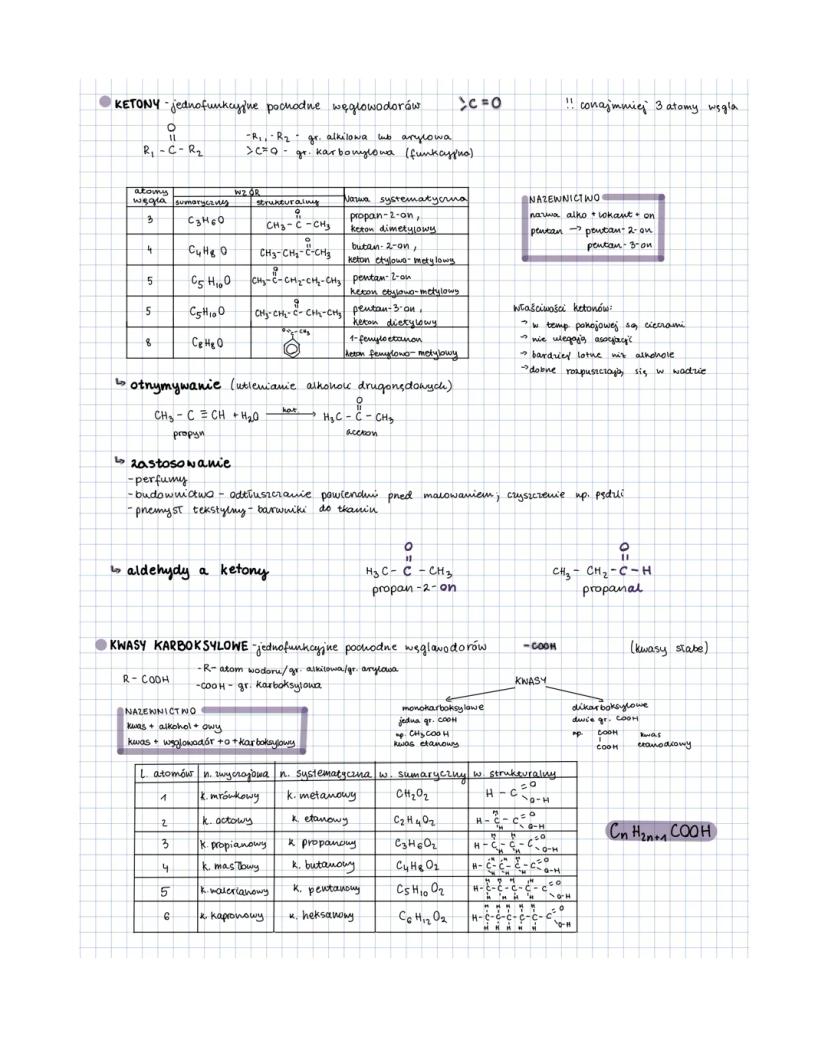 KETONY - jednofunkcyjne pochodne węglowodorów >C=O !! conajmniej 3 atomy węgla
O
||
R₁ - C - R₂
-R₁, -R₂ - gr. alkilowa lub arylowa
>C=O - gr. karbonylowa (funkcyjna)
atomy węgla | WZÓR sumaryczny | strukturalny | Nazwa systematyczna
3 | C₃H₆O | CH₃-C(=O)-CH₃ | propan-2-on, keton dimetylowy
4 | C₄H₈O | CH₃-CH₂-C(=O)-CH₃ | butan-2-on, keton etylowo-metylowy
5 | C₅H₁₀O | CH₃-C(=O)-CH₂-CH₂-CH₃ | pentan-2-on keton etylowo-metylowy
5 | C₅H₁₀O | CH₃-CH₂-C(=O)-CH₂-CH₃ | pentan-3-on, keton dietylowy
8 | C₈H₈O | O=C-CH₃ | 1-fenyloetanon keton fenylowo-metylowy
NAZEWNICTWO
nazwa alko + lokant + on
pentan → pentan-2-on
pentan-3-on
Właściwości ketonów:
→ w temp. pokojowej są cieczami
→ nie ulegają asocjacji
→ bardziej lotne niż alkohole
→ dobrze rozpuszczają się w wodzie
↳ otrzymywanie (utlenianie alkoholi drugorzędowych)
CH₃ - C ≡ CH + H₂O —kat.→ H₃C - C(=O) - CH₃
propyn aceton
↳ zastosowanie
- perfumy
- budownictwo - odtłuszczanie powierzchni przed malowaniem; czyszczenie np. pędzli
- przemysł tekstylny - barwniki do tkanin
↳ aldehydy a ketony
H₃C - C(=O) - CH₃ CH₃ - CH₂ - C(=O) - H
propan-2-on propanal
KWASY KARBOKSYLOWE - jednofunkcyjne pochodne węglowodorów -COOH (kwasy słabe)
R - COOH
-R- atom wodoru/gr. alkilowa/gr. arylowa
-COOH - gr. karboksylowa
KWASY
monokarboksylowe
jedna gr. COOH
np. CH₃COOH
kwas etanowy
dikarboksylowe
dwie gr. COOH
np. COOH kwas
| etanodiowy
COOH
NAZEWNICTWO
kwas + alkohol + owy
kwas + węglowodór + o + karboksylowy
l. atomów | n. zwyczajowa | n. systematyczna | w. sumaryczny | w. strukturalny
1 | k. mrówkowy | k. metanowy | CH₂O₂ | H-C(=O)-O-H
2 | k. octowy | k. etanowy | C₂H₄O₂ | H-C(H)(H)-C(=O)-O-H
3 | k. propianowy | k propanowy | C₃H₆O₂ | H-C(H)(H)-C(H)(H)-C(=O)-O-H
4 | k. masłowy | k. butanowy | C₄H₈O₂ | H-C(H)(H)-C(H)(H)-C(H)(H)-C(=O)-O-H
5 | k. walerianowy | k. pentanowy | C₅H₁₀O₂ | H-C(H)(H)-C(H)(H)-C(H)(H)-C(H)(H)-C(=O)-O-H
6 | k. kapronowy | k. heksanowy | C₆H₁₂O₂ | H-C(H)(H)-C(H)(H)-C(H)(H)-C(H)(H)-C(H)(H)-C(=O)-O-H
CₙH₂ₙ₊₁COOH